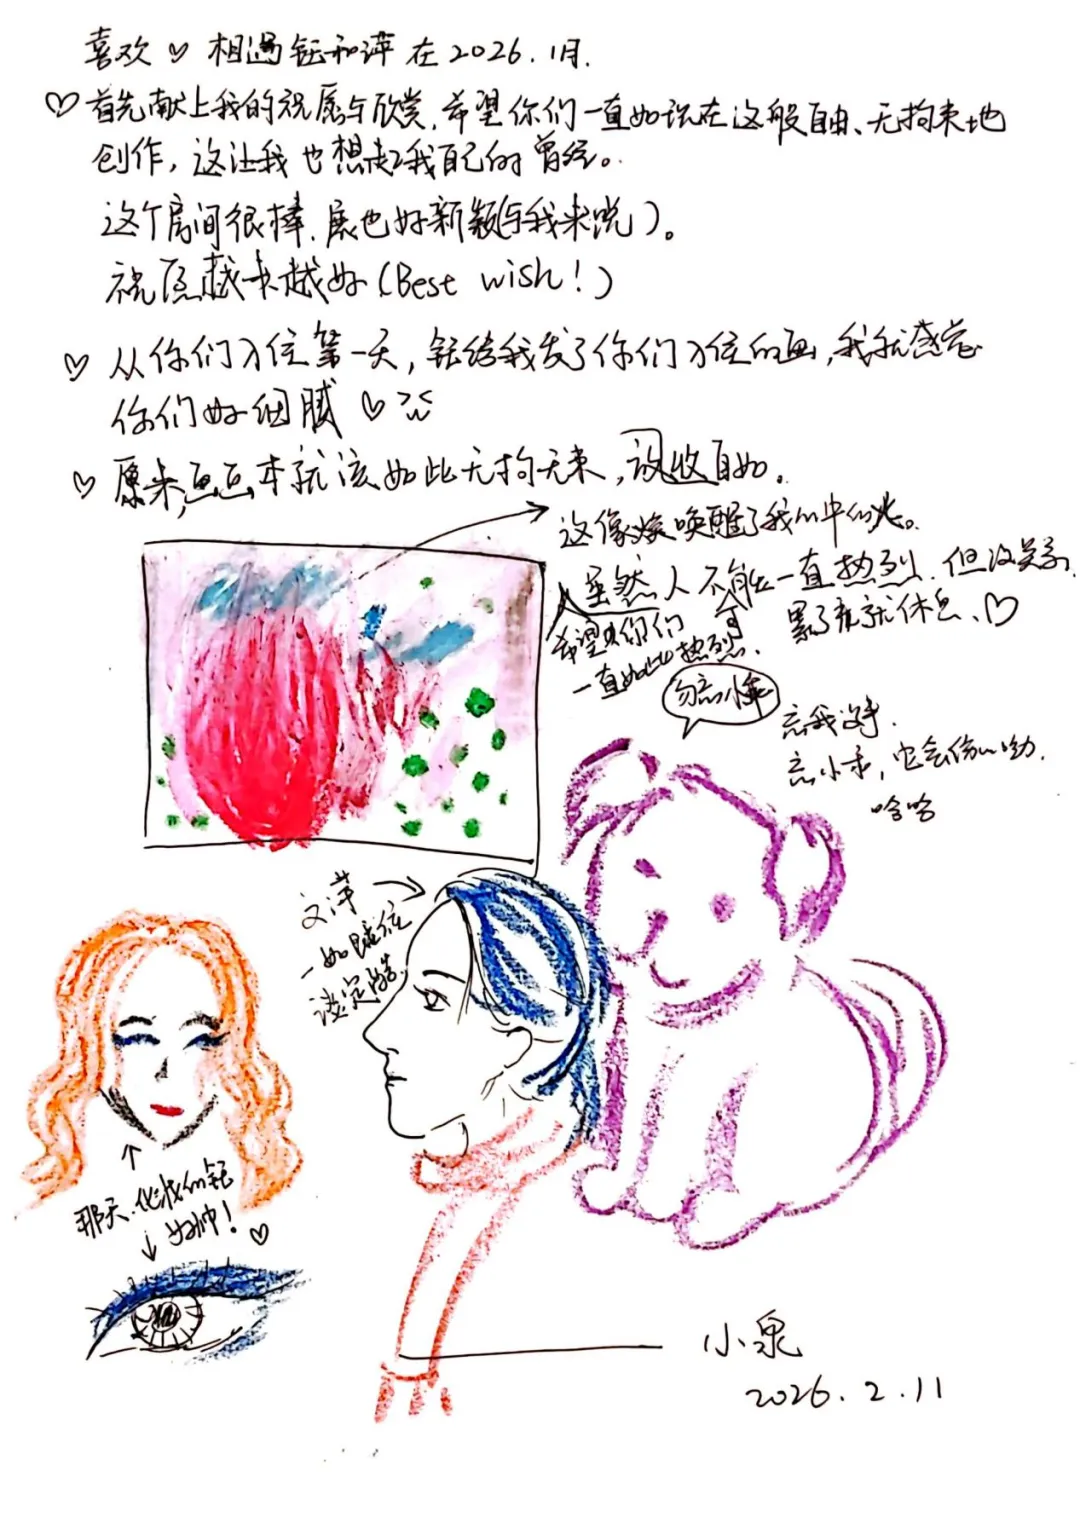 喜欢♡相遇钰和萍在2026.1月.
♡首先献上我的祝愿与欣赏,希望你们一直如现在这般自由、无拘束地
创作,这让我也想起我自己的曾经。
这个房间很棒,展也好新颖(与我来说)。
祝愿越来越好(Best wish!)
♡从你们入住第一天,钰给我发了你们入住的画,我就感觉
你们好细腻♡
♡原来,画画本就该如此无拘无束,放收自如。
这像唤醒了我心中的火。
虽然人不能一直热烈,但没关系
希望你们
累了就休息、♡
一直如此热烈.
勿忘小乖
忘我没事.
忘小乖,它会伤心呦.
哈哈
文萍
一如既往
淡定
那天,化妆的钰
好帅!♡
小泉
2026.2.11